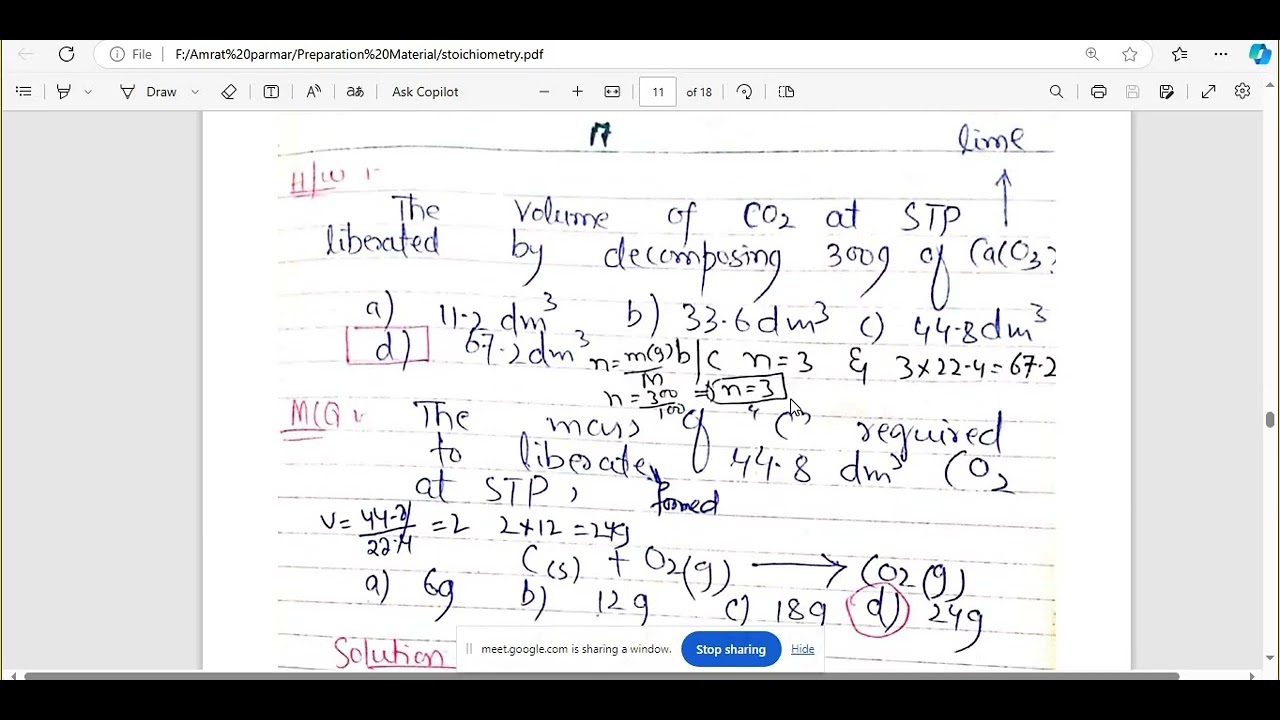 File F:/Amrat%20parmar/Preparation%20Material/stoichiometry.pdf
Draw Ask Copilot 11 of 18
lime
H/W :-
The Volume of CO2 at STP
liberated by decomposing 300g of CaCO3?
a) 11.2 dm³ b) 33.6 dm³ c) 44.8 dm³
d) 67.2 dm³ n = m(g)/M b/c n = 3 & 3×22.4 = 67.2
n = 300/100 ⇒ n = 3
MCQ :- The mass of "C" required
to liberate 44.8 dm³ CO2
at STP, formed
V = 44.8/22.4 = 2 2×12 = 24g
C(s) + O2(g) ⟶ CO2(g)
a) 6g b) 12g c) 18g d) 24g
Solution
meet.google.com is sharing a window. Stop sharing Hide